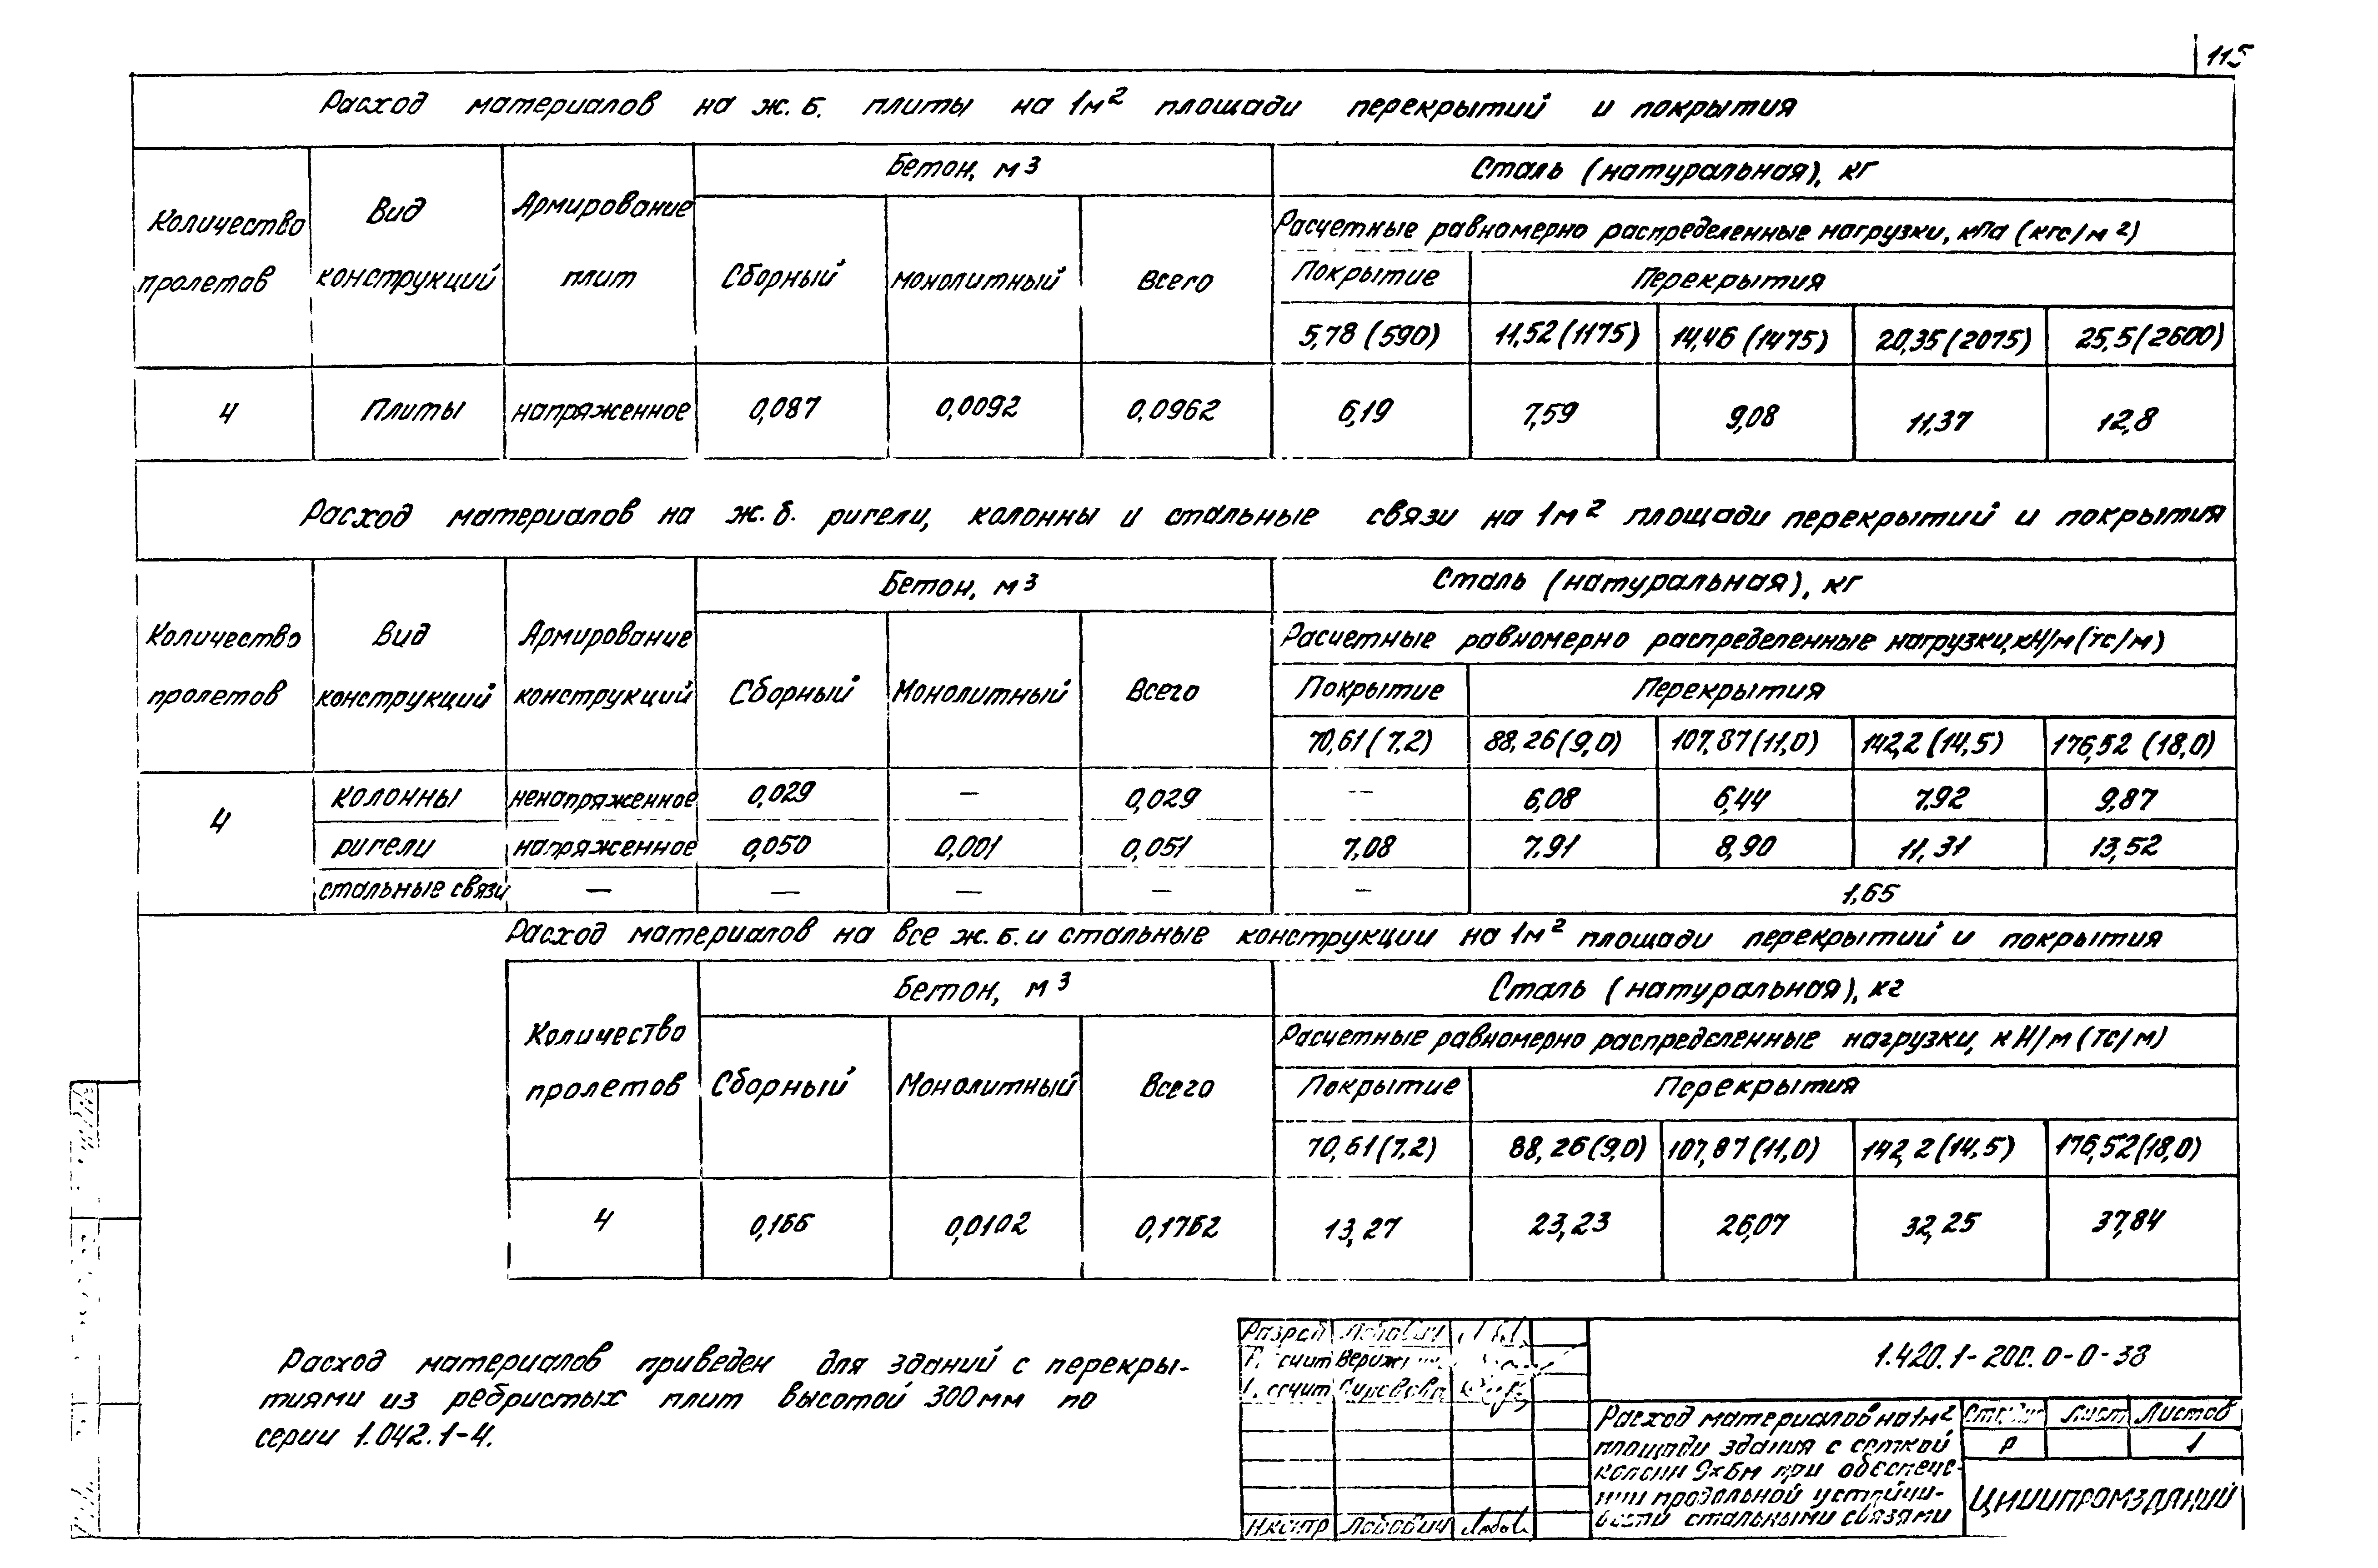 115
Расход материалов на ж.б. плиты на 1м² площади перекрытий и покрытия
Количество пролетов Вид конструкций Армирование плит Бетон, м3 Сталь (натуральная), кг
Расчетные равномерно распределенные нагрузки, кПа (кгс/м²)
Сборный Монолитный Всего Покрытие Перекрытия
5,78 (590) 11,52 (1175) 14,46 (1475) 20,35 (2075) 25,5 (2600)
4 Плиты напряженное 0,087 0,0092 0,0962 6,19 7,59 9,08 11,37 12,8
Расход материалов на ж.б. ригели, колонны и стальные связи на 1м² площади перекрытий и покрытия
Количество пролетов Вид конструкций Армирование конструкций Бетон, м3 Сталь (натуральная), кг
Расчетные равномерно распределенные нагрузки, кН/м (тс/м)
Сборный Монолитный Всего Покрытие Перекрытия
70,61 (7,2) 88,26 (9,0) 107,87 (11,0) 142,2 (14,5) 176,52 (18,0)
4 колонны ненапряженное 0,029 — 0,029 -- 6,08 6,44 7,92 9,87
ригели напряженное 0,050 0,001 0,051 7,08 7,91 8,90 11,31 13,52
стальные связи — — — — — 1,65
Расход материалов на все ж.б. и стальные конструкции на 1м² площади перекрытий и покрытия
Количество пролетов Бетон, м3 Сталь (натуральная), кг
Расчетные равномерно распределенные нагрузки, кН/м (тс/м)
Сборный Монолитный Всего Покрытие Перекрытия
70,61 (7,2) 88,26 (9,0) 107,87 (11,0) 142,2 (14,5) 176,52 (18,0)
4 0,166 0,0102 0,1762 13,27 23,23 26,07 32,25 37,84
Расход материалов приведен для зданий с перекры-
тиями из ребристых плит высотой 300мм по
серии 1.042.1-4.
Разраб Лобович
Н.контр Лобович
1.420.1-20с.0-0-38
Расход материалов на 1м²
площади здания с сеткой
колонн 9×6м при обеспече-
нии продольной устойчи-
вости стальными связями
Стадия Лист Листов
Р 1
ЦНИИПРОМЗДАНИЙ